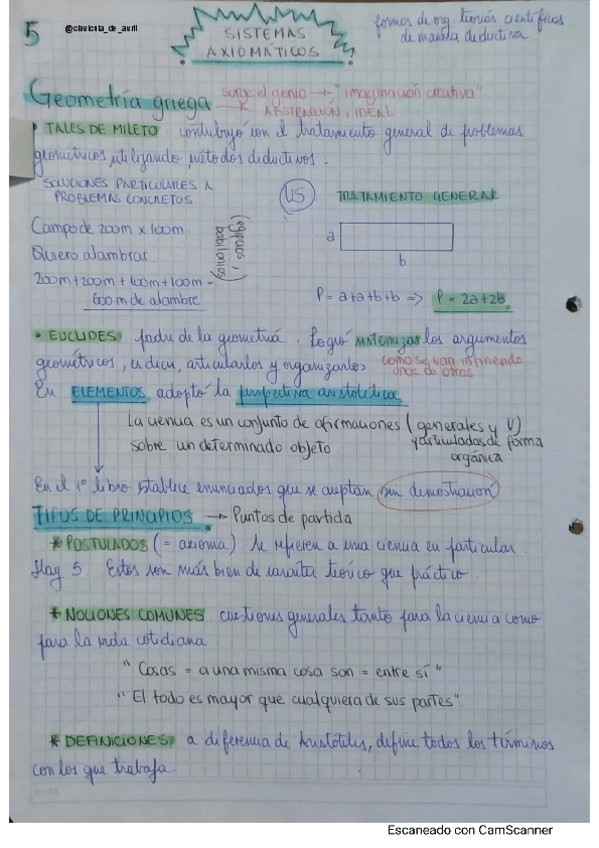 5
@clavicula_de_avril
SISTEMAS
AXIOMÁTICOS
formas de org. teorías científicas
de manera deductiva
Geometría griega
surge el genio → "imaginación creativa"
ABSTRACCIÓN, IDEAL
• TALES DE MILETO: contribuyó con el tratamiento general de problemas
geométricos, utilizando métodos deductivos.
SOLUCIONES PARTICULARES A
PROBLEMAS CONCRETOS
(egipcios,
babilonios)
VS
TRATAMIENTO GENERAL
Campo de 200m x 100m.
Quiero alambrar.
200m+200m+100m+100m =
600 m de alambre
a
b
P = a+a+b+b => P = 2a+2b
• EUCLIDES: padre de la geometría. Logró sistematizar los argumentos
geométricos, es decir, articularlos y organizarlos
como se van infiriendo
unos de otros
En ELEMENTOS, adoptó la perspectiva aristotélica
La ciencia es un conjunto de afirmaciones (generales y V)
sobre un determinado objeto.
y articuladas de forma
orgánica
En el 1° libro establece enunciados que se aceptan sin demostración
TIPOS DE PRINCIPIOS → Puntos de partida
* POSTULADOS (= axioma). Se refieren a una ciencia en particular.
Hay 5. Estos son más bien de carácter teórico que práctico.
* NOCIONES COMUNES: cuestiones generales tanto para la ciencia como
para la vida cotidiana
"Cosas = a una misma cosa son = entre sí"
"El todo es mayor que cualquiera de sus partes"
* DEFINICIONES: a diferencia de Aristóteles, define todos los términos
con los que trabaja.
Escaneado con CamScanner